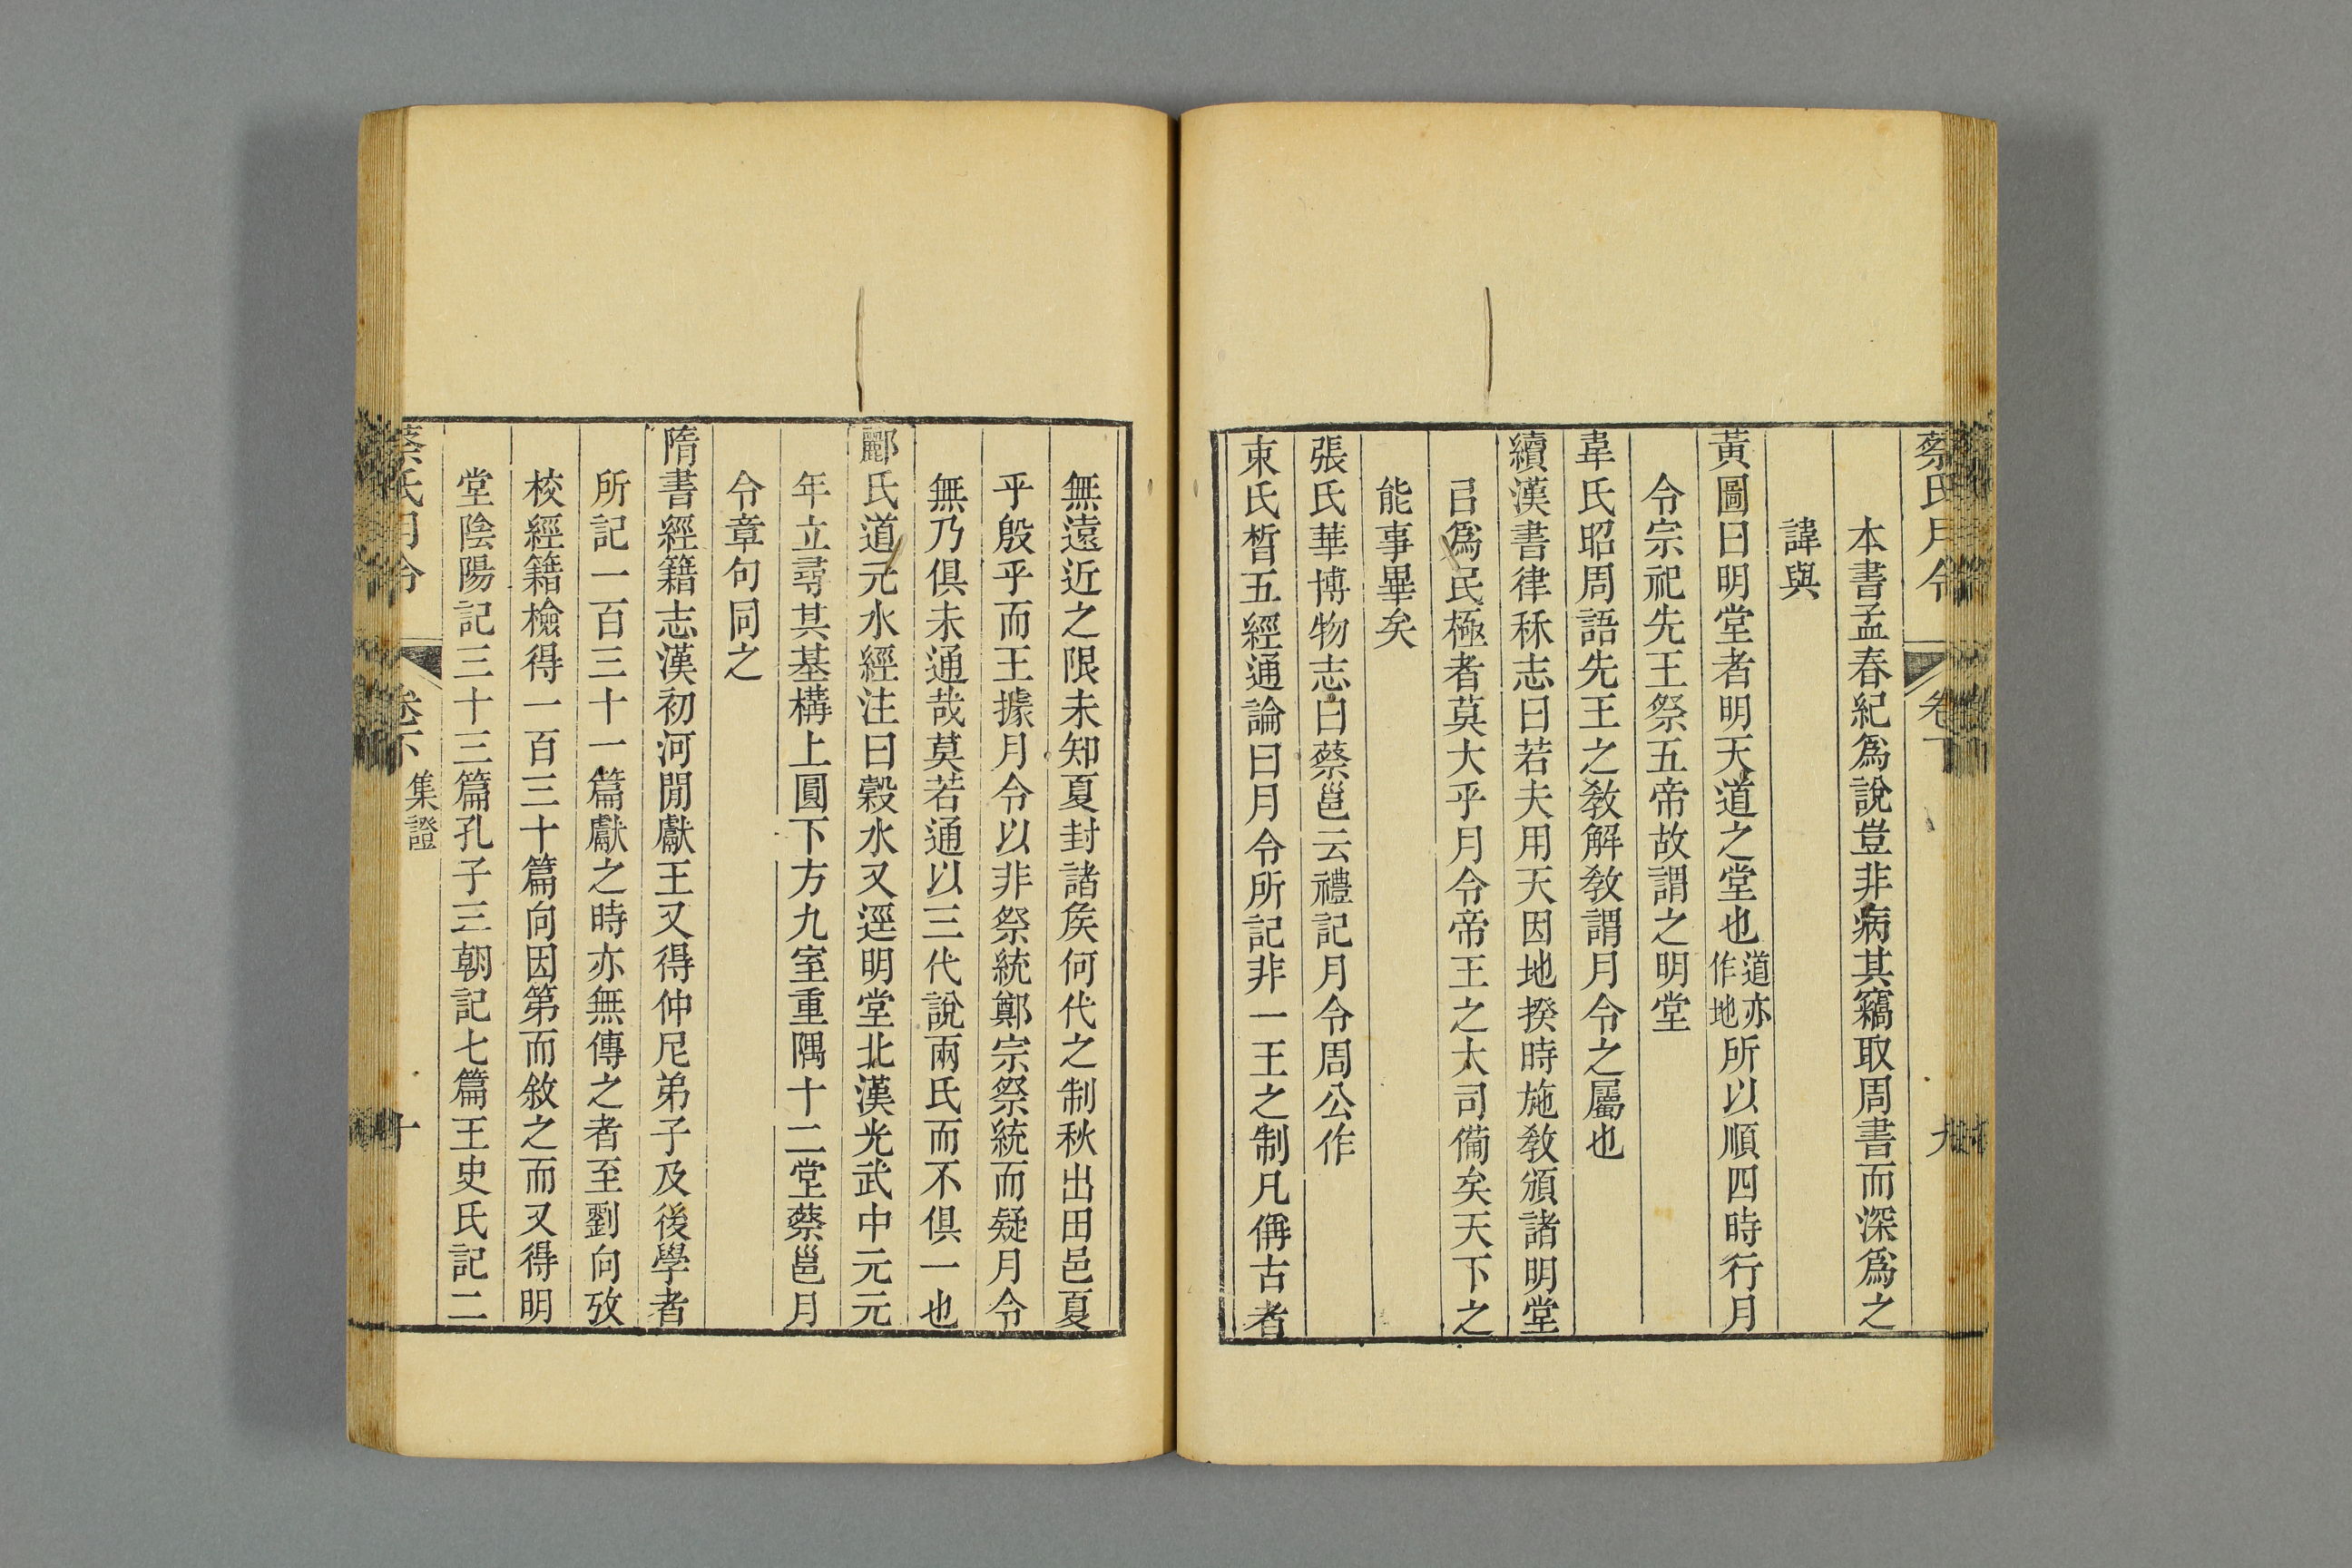 蔡氏月令 卷下 九
本書孟春紀爲說豈非病其竊取周書而深爲之
諱與
黃圖曰明堂者明天道之堂也道亦作地所以順四時行月
令宗祀先王祭五帝故謂之明堂
韋氏昭周語先王之敎解敎謂月令之屬也
續漢書律秝志曰若夫用天因地揆時施敎頒諸明堂
㠯爲民極者莫大乎月令帝王之大司備矣天下之
能事畢矣
張氏華博物志曰蔡邕云禮記月令周公作
束氏晳五經通論曰月令所記非一王之制凡偁古者
無遠近之限未知夏封諸矦何代之制秋出田邑夏
乎殷乎而王據月令以非祭統鄭宗祭統而疑月令
無乃俱未通哉莫若通以三代說兩氏而不俱一也
酈氏道元水經注曰穀水又逕明堂北漢光武中元元
年立尋其基構上圓下方九室重隅十二堂蔡邕月
令章句同之
隋書經籍志漢初河閒獻王又得仲尼弟子及後學者
所記一百三十一篇獻之時亦無傳之者至劉向攷
校經籍檢得一百三十篇向因第而敘之而又得明
堂陰陽記三十三篇孔子三朝記七篇王史氏記二
蔡氏月令 卷下 集證 十